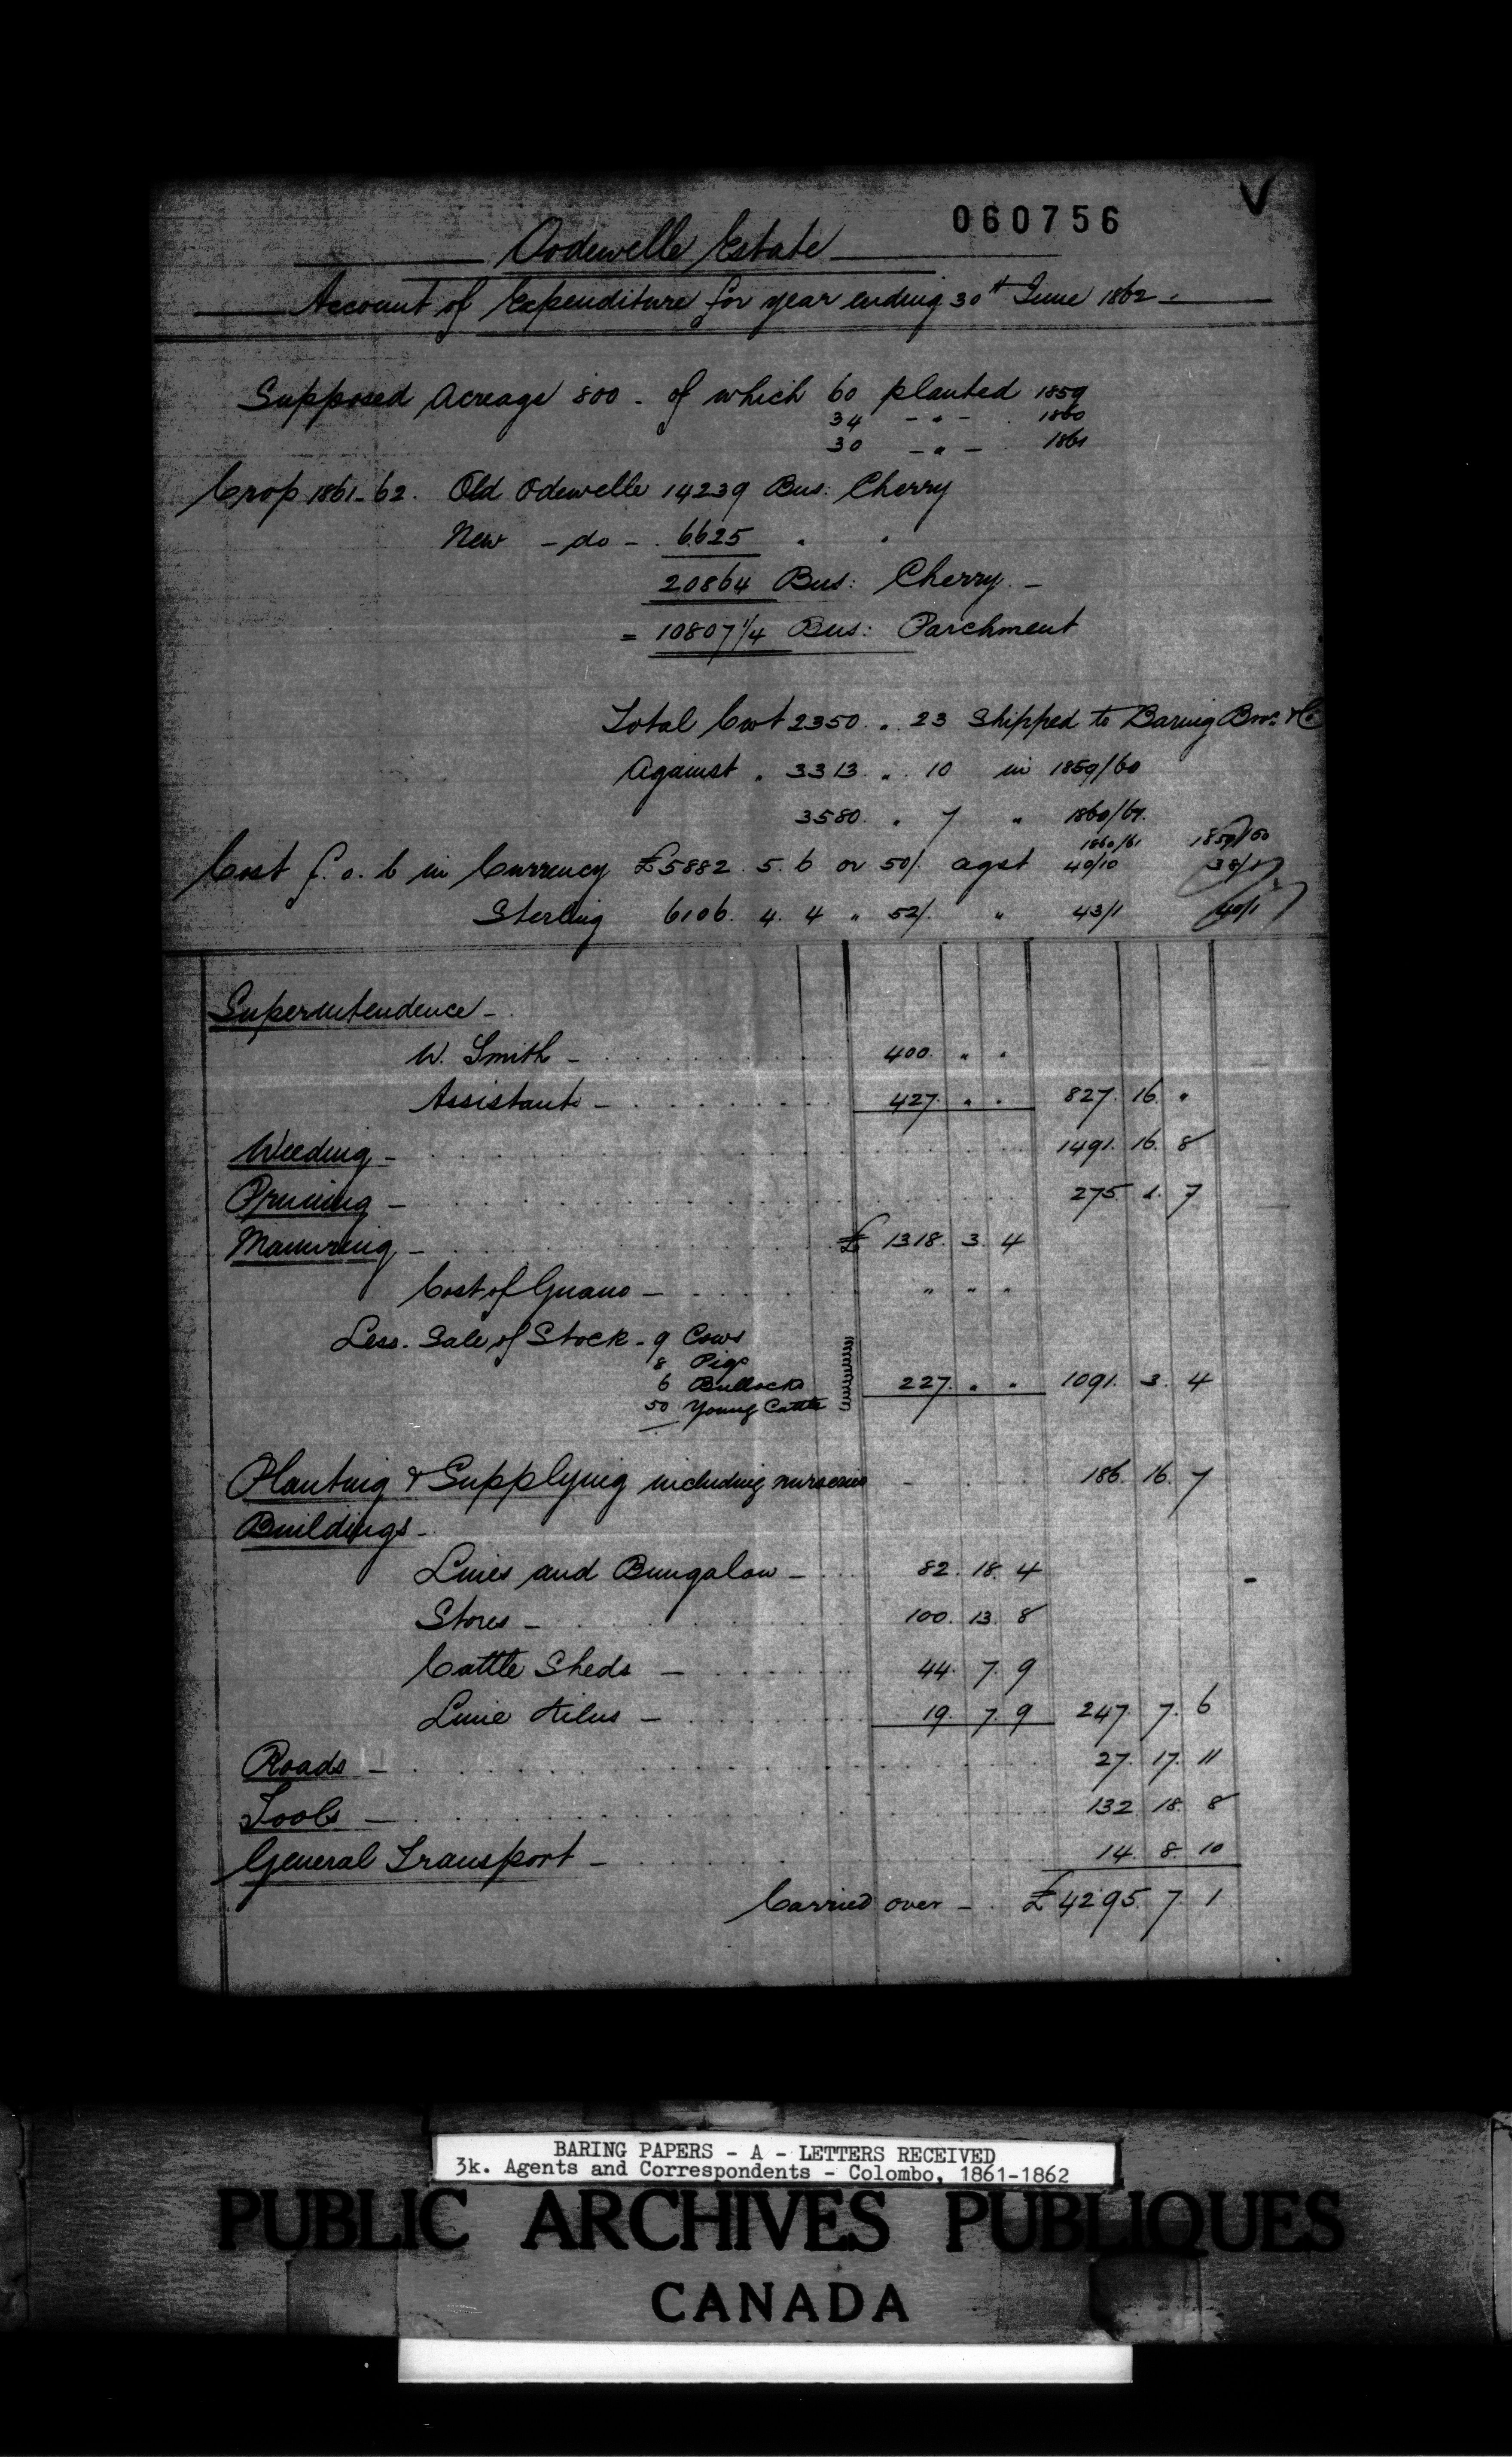 060756
V
Oodewelle Estate
Account of Expenditure for year ending 30th June 1862
Supposed Acreage 800 - of which 60 planted 1859
34 - " - 1860
30 - " - 1861
Crop 1861-62. Old Odewelle 14239 Bus: Cherry
New - do - 6625 " "
20864 Bus: Cherry -
= 10807 1/4 Bus: Parchment
Total Cwt 2350 .. 23 Shipped to Baring Bros & Co
Against " 3313 .. 10 in 1859/60
3580 . 7 " 1860/61.
1860/61 1859/60
Cost f. o. b in Currency £5882. 5. 6 or 50/. agst 40/10
Sterling 6106. 4. 4 " 52/. " 43/1 40/1
Superintendence -
W. Smith - 400. " "
Assistants - 427. " . 827. 16. "
Weeding - 1491. 16. 8
Pruining - 275. 1. 7
Manuring - £ 1318. 3. 4
Cost of Guano - " " "
Less. Sale of Stock - 9 Cows
8 Pigs
6 Bullocks 227. " " 1091. 3. 4
50 Young Cattle
Planting & Supplying including nurseries - 186. 16. 7
Buildings -
Lines and Bungalow - 82. 18. 4
Stores - 100. 13. 8
Cattle Sheds - 44. 7. 9
Lime Kilns - 19. 7. 9 247. 7. 6
Roads - 27. 17. 11
Tools - 132. 18. 8
General Transport - 14. 8. 10
Carried over - £4295. 7. 1
BARING PAPERS - A - LETTERS RECEIVED
3k. Agents and Correspondents - Colombo, 1861-1862
PUBLIC ARCHIVES PUBLIQUES
CANADA